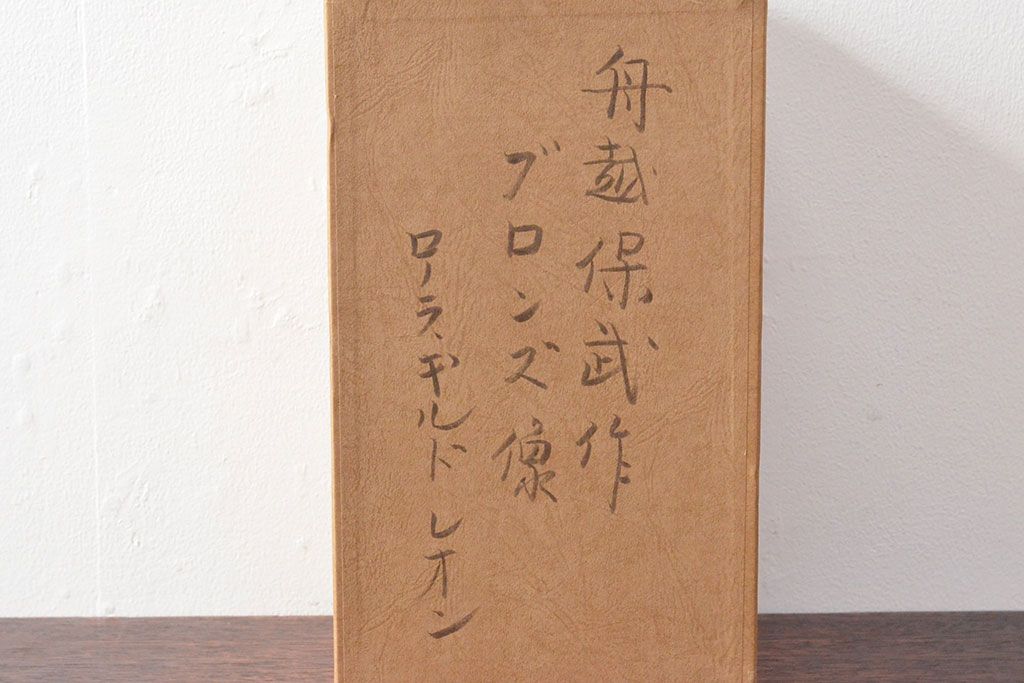 舟越保武作
ブロンズ像
ローラ、ギルド レオン